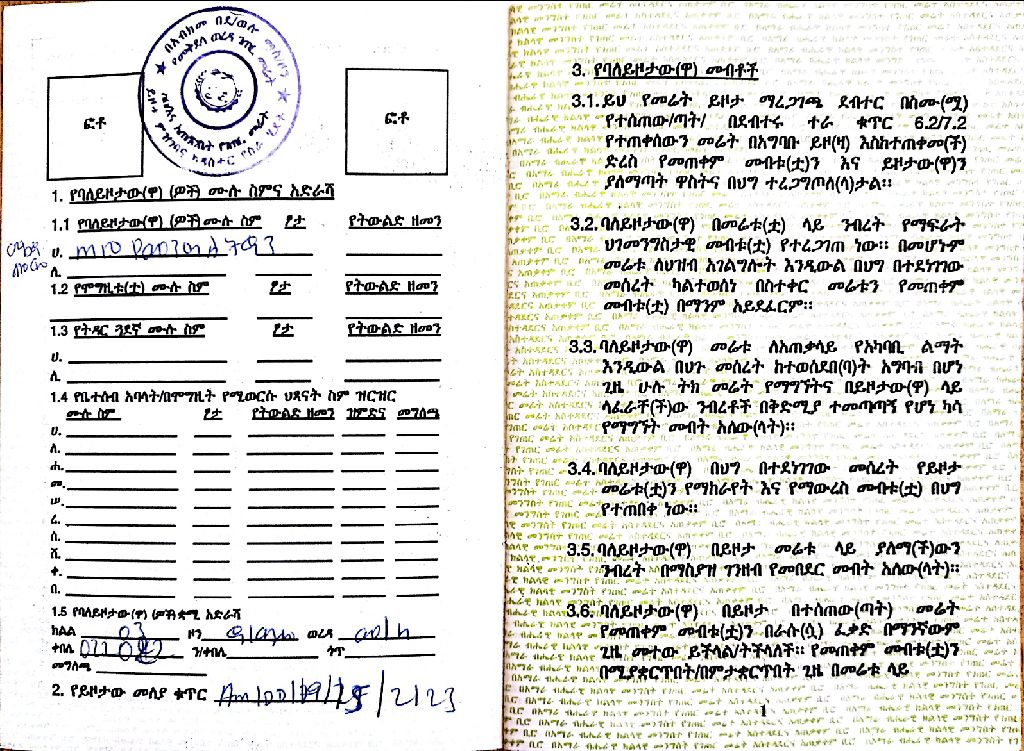 ፎቶ
ፎቶ
1. የባለይዞታው(ዋ) (ዎች) ሙሉ ስምና አድራሻ
1.1 የባለይዞታው(ዋ) (ዎች) ሙሉ ስም ፆታ የትውልድ ዘመን
ሀ.
ለ.
1.2 የሞግዚቱ(ቷ) ሙሉ ስም ፆታ የትውልድ ዘመን
1.3 የትዳር ጓደኛ ሙሉ ስም ፆታ የትውልድ ዘመን
ሀ.
ለ.
1.4 የቤተሰብ አባላት/በሞግዚት የሚወርሱ ህጻናት ስም ዝርዝር
ሙሉ ስም ፆታ የትውልድ ዘመን ዝምድና መግለጫ
ሀ.
ለ.
ሐ.
መ.
ሠ.
ረ.
ሰ.
ሸ.
ቀ.
በ.
1.5 የባለይዞታው(ዋ) (ዎች) ቋሚ አድራሻ
ክልል 03 ዞን ወረዳ
ቀበሌ 022 ን/ቀበሌ ጎጥ
መግለጫ
2. የይዞታው መለያ ቁጥር
3. የባለይዞታው(ዋ) መብቶች
3.1. ይህ የመሬት ይዞታ ማረጋገጫ ደብተር በስሙ(ሟ)
የተሰጠው/ጣት/ በደብተሩ ተራ ቁጥር 6.2/7.2
የተጠቀሰውን መሬት በአግባቡ ይዞ(ዛ) እስከተጠቀመ(ች)
ድረስ የመጠቀም መብቱ(ቷ)ን እና ይዞታው(ዋ)ን
ያለማጣት ዋስትና በህግ ተረጋግጦለ(ላ)ታል።
3.2. ባለይዞታው(ዋ) በመሬቱ(ቷ) ላይ ንብረት የማፍራት
ህገመንግስታዊ መብቱ(ቷ) የተረጋገጠ ነው። በመሆኑም
መሬቱ ለህዝብ አገልግሎት እንዲውል በህግ በተደነገገው
መሰረት ካልተወሰነ በስተቀር መሬቱን የመጠቀም
መብቱ(ቷ) በማንም አይደፈርም።
3.3. ባለይዞታው(ዋ) መሬቱ ለአጠቃላይ የአካባቢ ልማት
እንዲውል በህጉ መሰረት ከተወሰደበ(ባ)ት አግባብ በሆነ
ጊዜ ሁሉ ትክ መሬት የማግኘትና በይዞታው(ዋ) ላይ
ላፈራቸ(ች)ው ንብረቶች በቅድሚያ ተመጣጣኝ የሆነ ካሳ
የማግኘት መብት አለው(ላት)።
3.4. ባለይዞታው(ዋ) በህግ በተደነገገው መሰረት የይዞታ
መሬቱ(ቷ)ን የማከራየት እና የማውረስ መብቱ(ቷ) በህግ
የተጠበቀ ነው።
3.5. ባለይዞታው(ዋ) በይዞታ መሬቱ ላይ ያለማ(ች)ውን
ንብረት በማስያዝ ገንዘብ የመበደር መብት አለው(ላት)።
3.6. ባለይዞታው(ዋ) በይዞታ በተሰጠው(ጣት) መሬት
የመጠቀም መብቱ(ቷ)ን በራሱ(ሷ) ፈቃድ በማንኛውም
ጊዜ መተው ይችላል/ትችላለች። የመጠቀም መብቱ(ቷ)ን
በሚያቋርጥበት/በምታቋርጥበት ጊዜ በመሬቱ ላይ
1